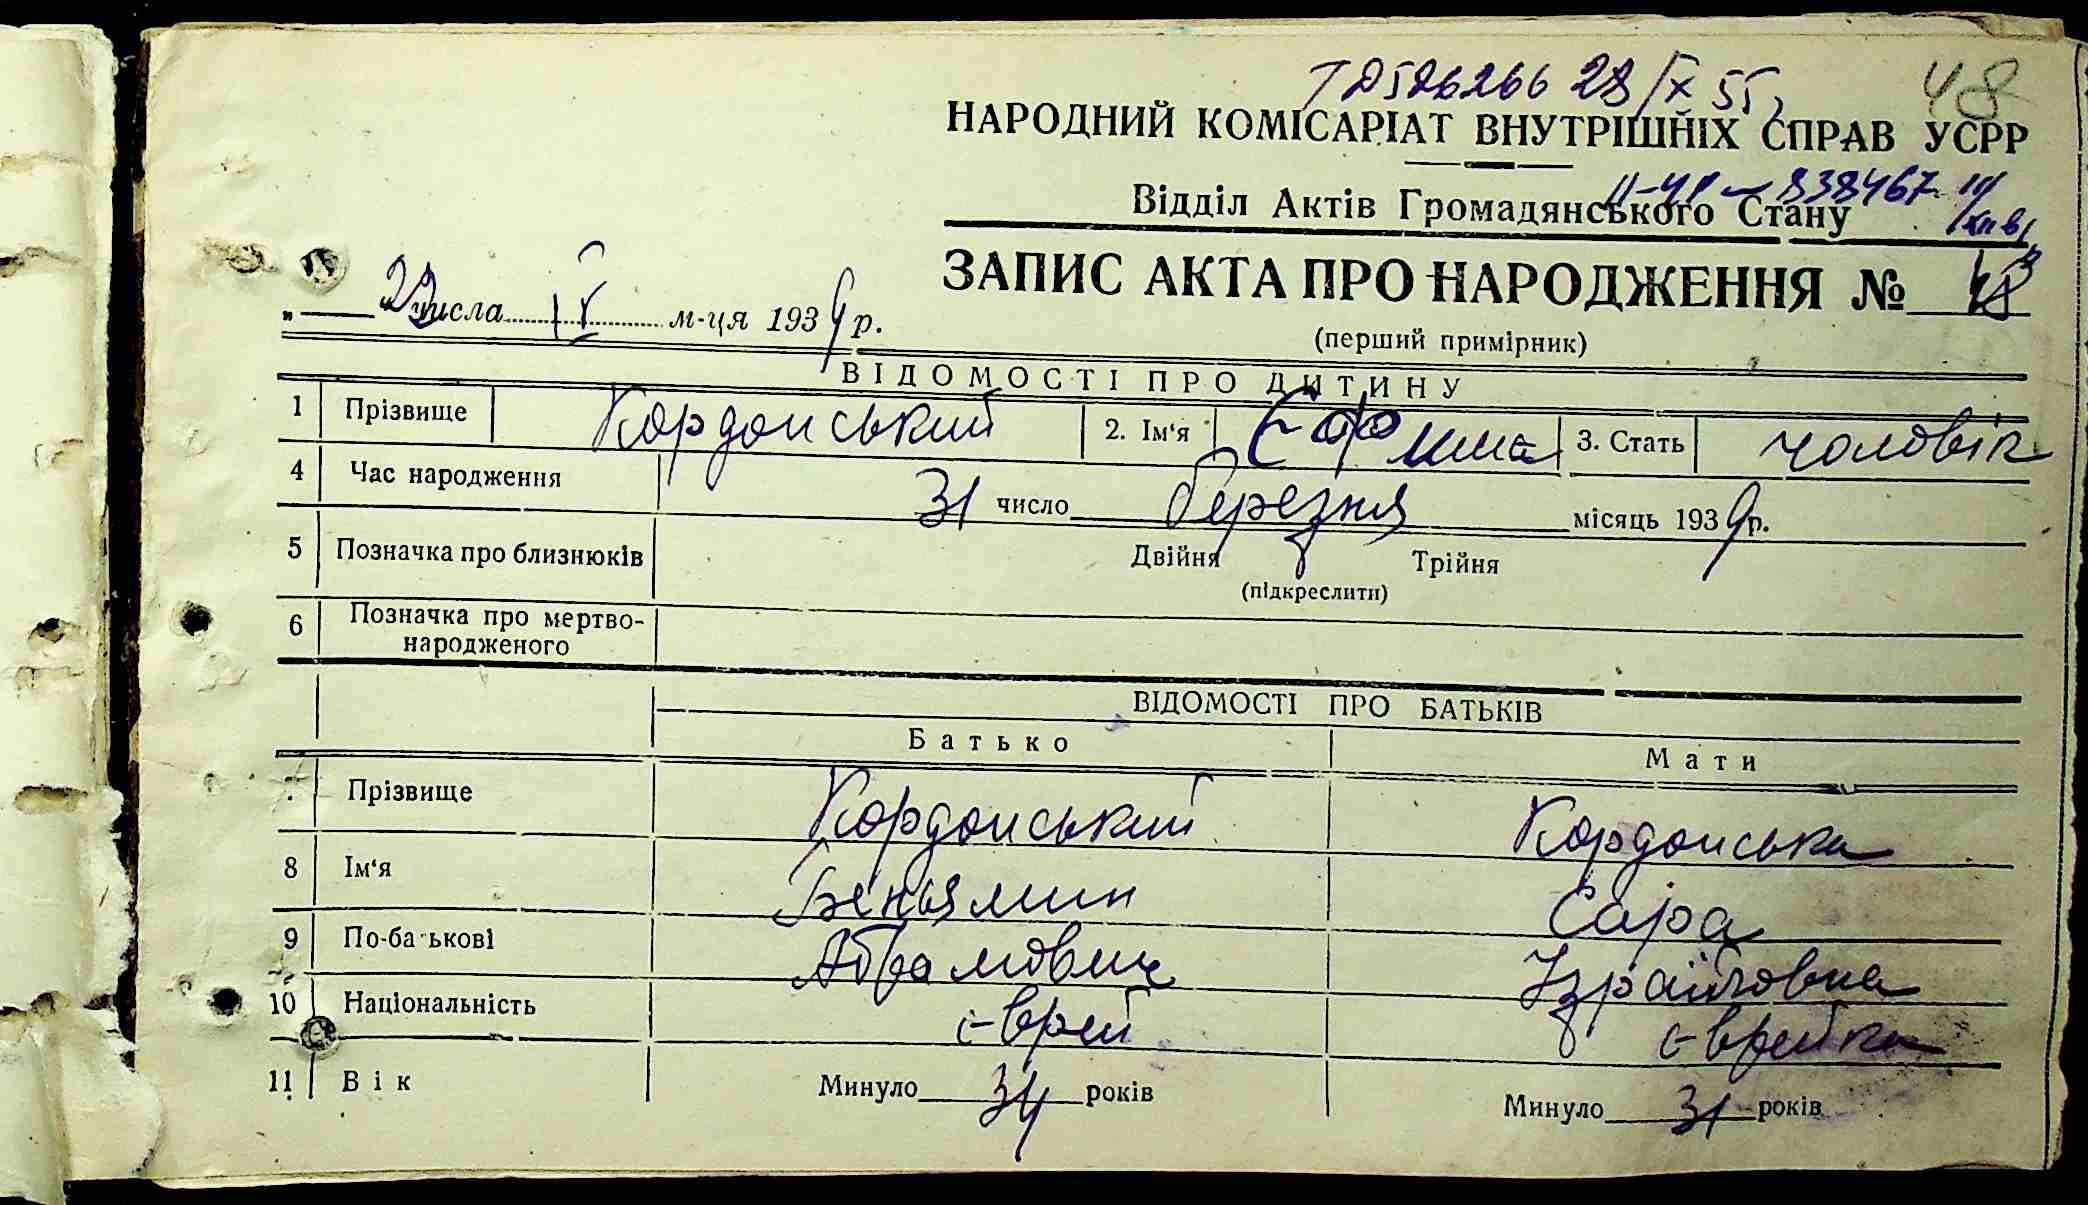 48
ТД526266 28/IX 55
НАРОДНИЙ КОМІСАРІАТ ВНУТРІШНІХ СПРАВ УСРР
838467
Відділ Актів Громадянського Стану
ЗАПИС АКТА ПРО НАРОДЖЕННЯ № 48
(перший примірник)
„ 29 числа IV м-ця 1939 р.
ВІДОМОСТІ ПРО ДИТИНУ
1 Прізвище Кордонський 2. Ім‘я Єфима 3. Стать чоловік
4 Час народження 31 число березня місяць 1939 р.
5 Позначка про близнюків Двійня Трійня
(підкреслити)
6 Позначка про мертво-
народженого
ВІДОМОСТІ ПРО БАТЬКІВ
Батько Мати
Прізвище Кордонський Кордонська
8 Ім‘я Беньямин Сара
9 По-батькові Абрамович Ізраїловна
10 Національність єврей єврейка
11 Вік Минуло 34 років Минуло 31 років